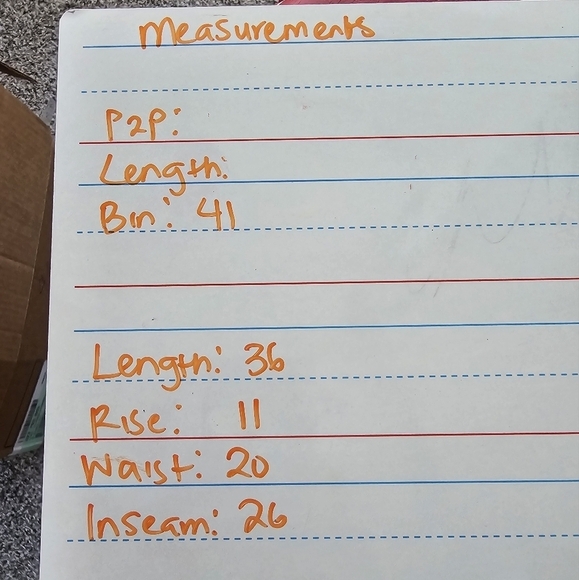 Measurements
P2P:
Length:
Bin: 41
Length: 36
Rise: 11
Waist: 20
Inseam: 26